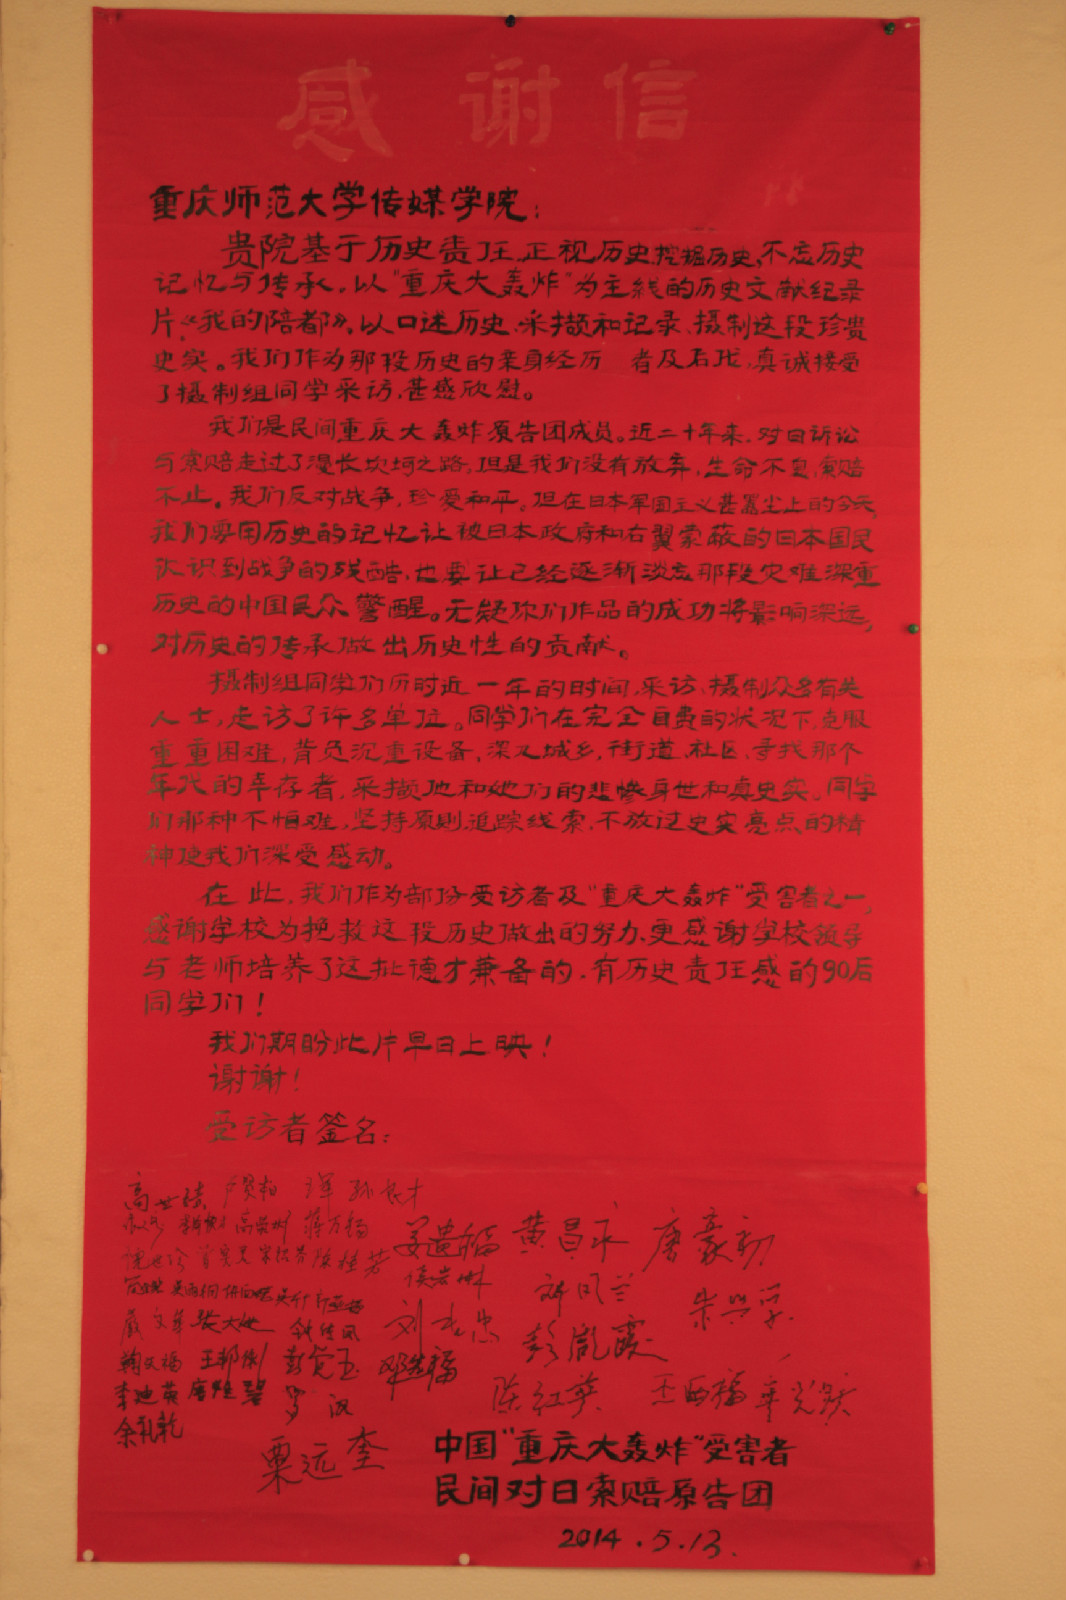 感谢信
重庆师范大学传媒学院:
贵院基于历史责任,正视历史,挖掘历史,不忘历史
记忆与传承,以"重庆大轰炸"为主线的历史文献纪录
片,《我的陪都》,以口述历史、采撷和记录、摄制这段珍贵
史实。我们作为那段历史的亲身经历 者及后代,真诚接受
了摄制组同学采访,甚感欣慰。
我们是民间重庆大轰炸原告团成员。近二十年来,对日诉讼
与索赔走过了漫长坎坷之路,但是我们没有放弃,生命不息,索赔
不止。我们反对战争,珍爱和平。但在日本军国主义甚嚣尘上的今天,
我们要用历史的记忆让被日本政府和右翼蒙蔽的日本国民
认识到战争的残酷,也要让已经逐渐淡忘那段灾难深重
历史的中国民众警醒。无疑你们作品的成功将影响深远,
对历史的传承做出历史性的贡献。
摄制组同学们历时近一年的时间,采访、摄制众多有关
人士,走访了许多单位。同学们在完全自费的状况下,克服
重重困难,背负沉重设备,深入城乡,街道、社区、寻找那个
年代的幸存者,采撷他和她们的悲惨身世和真史实。同学
们那种不怕难,坚持原则,追踪线索,不放过史实亮点的精
神使我们深受感动。
在此,我们作为部份受访者及"重庆大轰炸"受害者之一,
感谢学校为挽救这段历史做出的努力,更感谢学校领导
与老师培养了这批德才兼备的,有历史责任感的90后
同学们!
我们期盼此片早日上映!
谢谢!
受访者签名:
高世
姜遗福 黄昌永 唐豪初
刘
彭胤霞 朱兴学
陈红英
王西福
鞠天福
彭觉玉
李迪英
罗汉
余礼乾
粟远奎
中国"重庆大轰炸"受害者
民间对日索赔原告团
2014.5.13.